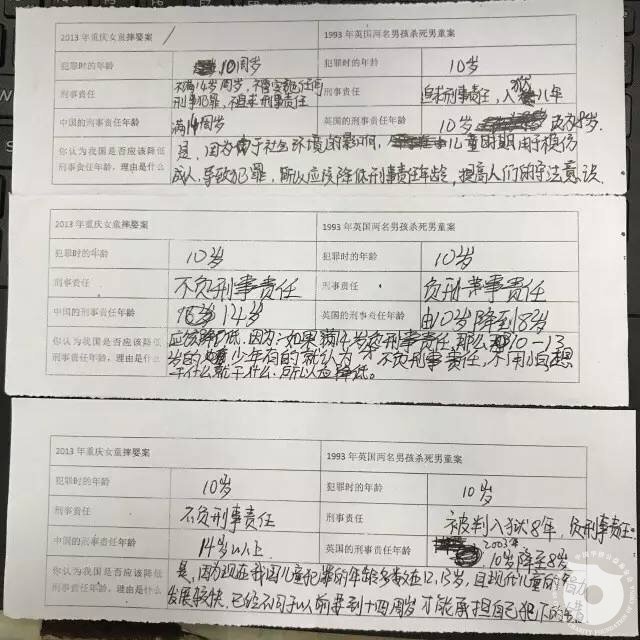 2013年重庆女童摔婴案 1993年英国两名男孩杀死男童案
犯罪时的年龄 10周岁 犯罪时的年龄 10岁
刑事责任 不满14岁周岁,不需要担任何 刑事责任 追求刑事责任,入狱八年
刑事犯罪,不追求刑事责任
中国的刑事责任年龄 满14周岁 英国的刑事责任年龄 10岁 改为8岁.
你认为我国是否应该降低 是,因为由于社会环境的影响, 儿童时期用于模仿
刑事责任年龄,理由是什么 成人,导致犯罪,所以应该降低刑事责任年龄,提高人们的守法意识
2013年重庆女童摔婴案 1993年英国两名男孩杀死男童案
犯罪时的年龄 10岁 犯罪时的年龄 10岁
刑事责任 不负刑事责任 刑事责任 负刑事责任
中国的刑事责任年龄 14岁 英国的刑事责任年龄 由10岁降到8岁
你认为我国是否应该降低 应该降低.因为:如果满14岁负刑事责任,那么 10-13
刑事责任年龄,理由是什么 岁的 少年有的就认为 不负刑事责任,不用 想
干什么就干什么.所以应降低。
2013年重庆女童摔婴案 1993年英国两名男孩杀死男童案
犯罪时的年龄 10岁 犯罪时的年龄 10岁
刑事责任 不负刑事责任 刑事责任 被判入狱8年,负刑事责任.
中国的刑事责任年龄 14岁以上 英国的刑事责任年龄 2003年 10岁降至8岁
你认为我国是否应该降低 是,因为现在我国儿童犯罪的年龄多数在12,13岁,且现代儿童
刑事责任年龄,理由是什么 发展较快,已经不同于以前要到十四周岁才能承担自己犯下的